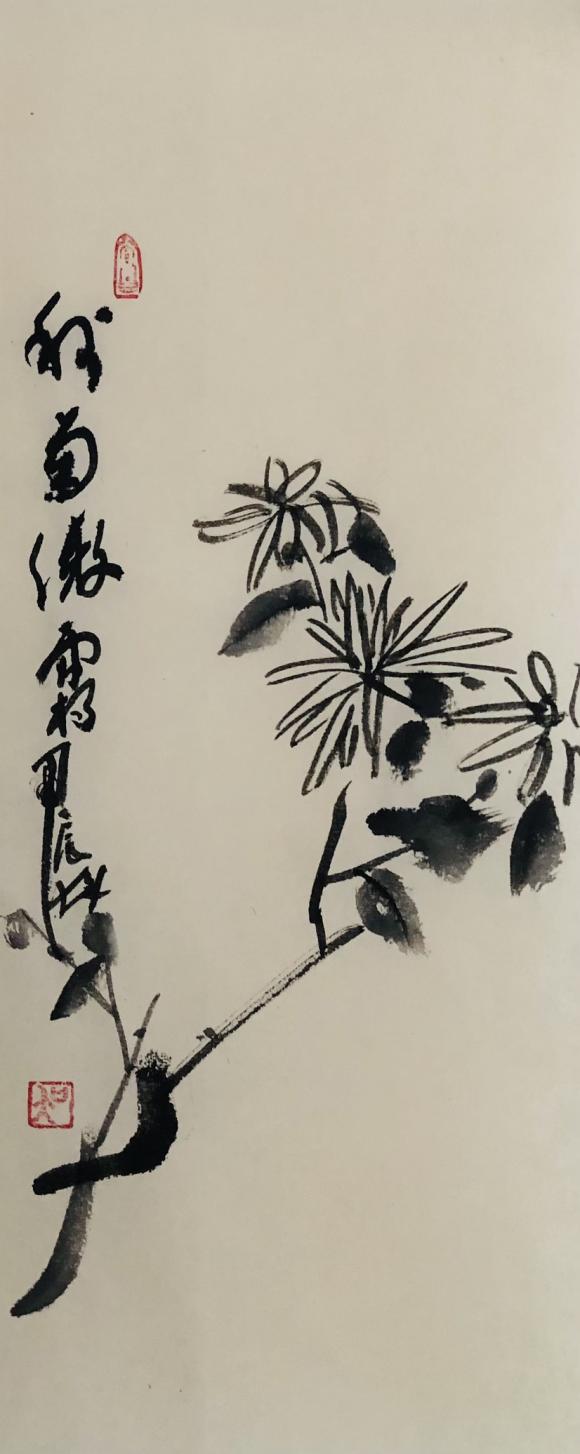 秋菊傲霜甲辰